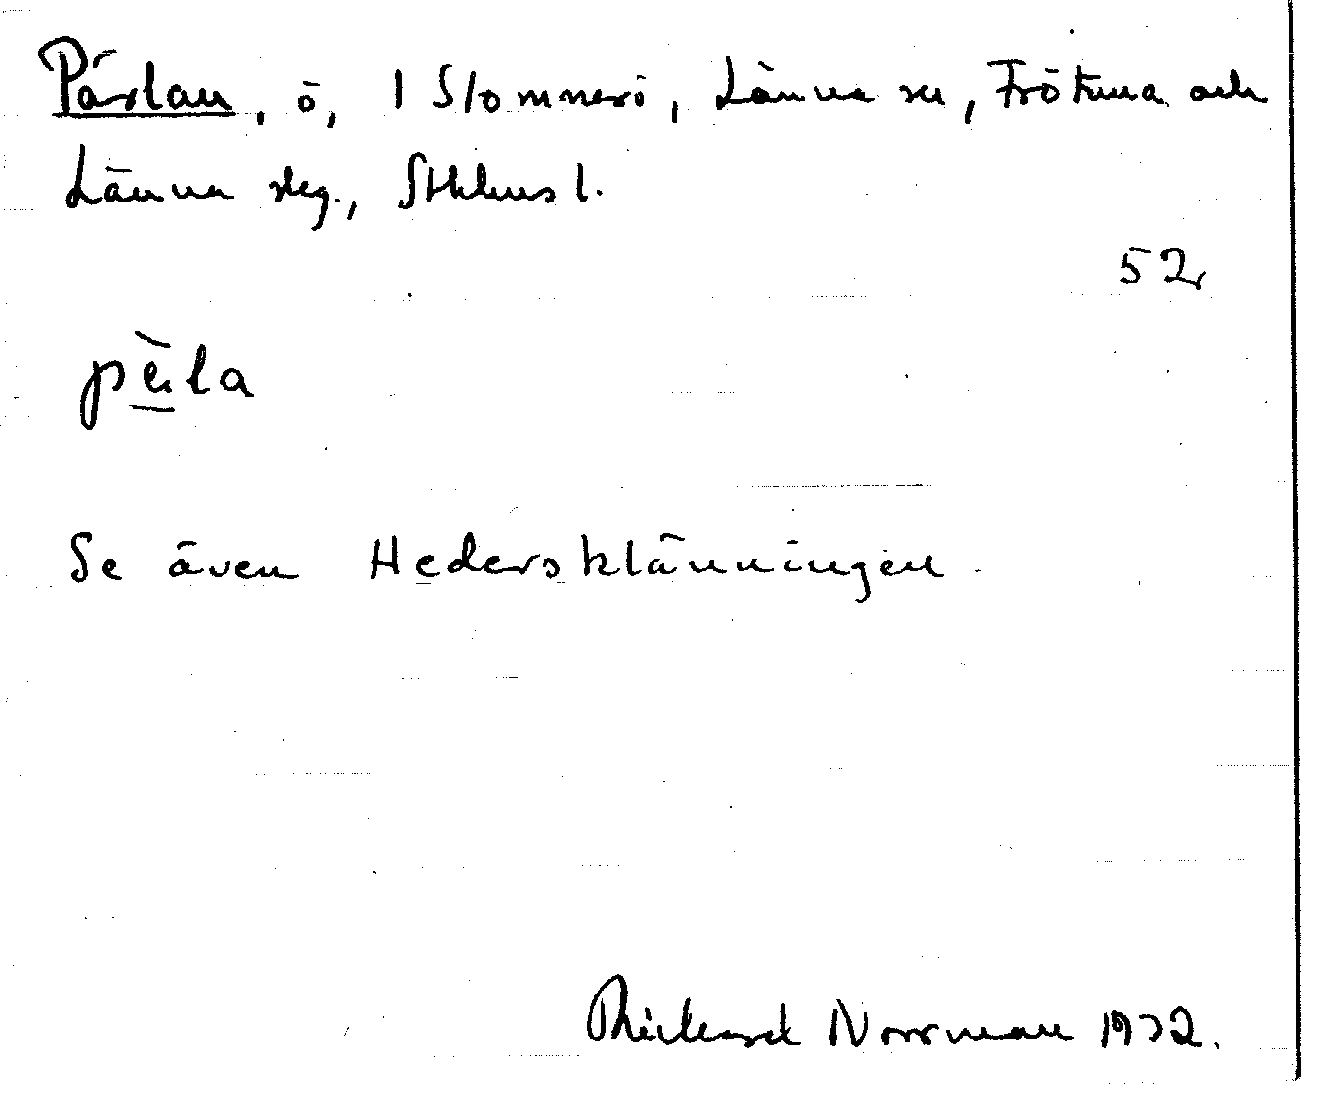 Pärlan, ö, 1 Slommerö, Länna sn, Frötuna och
Länna skg., Sthlms l.
52
pèla
Se även Hedersklänningen.
Rickard Norrman 1932.